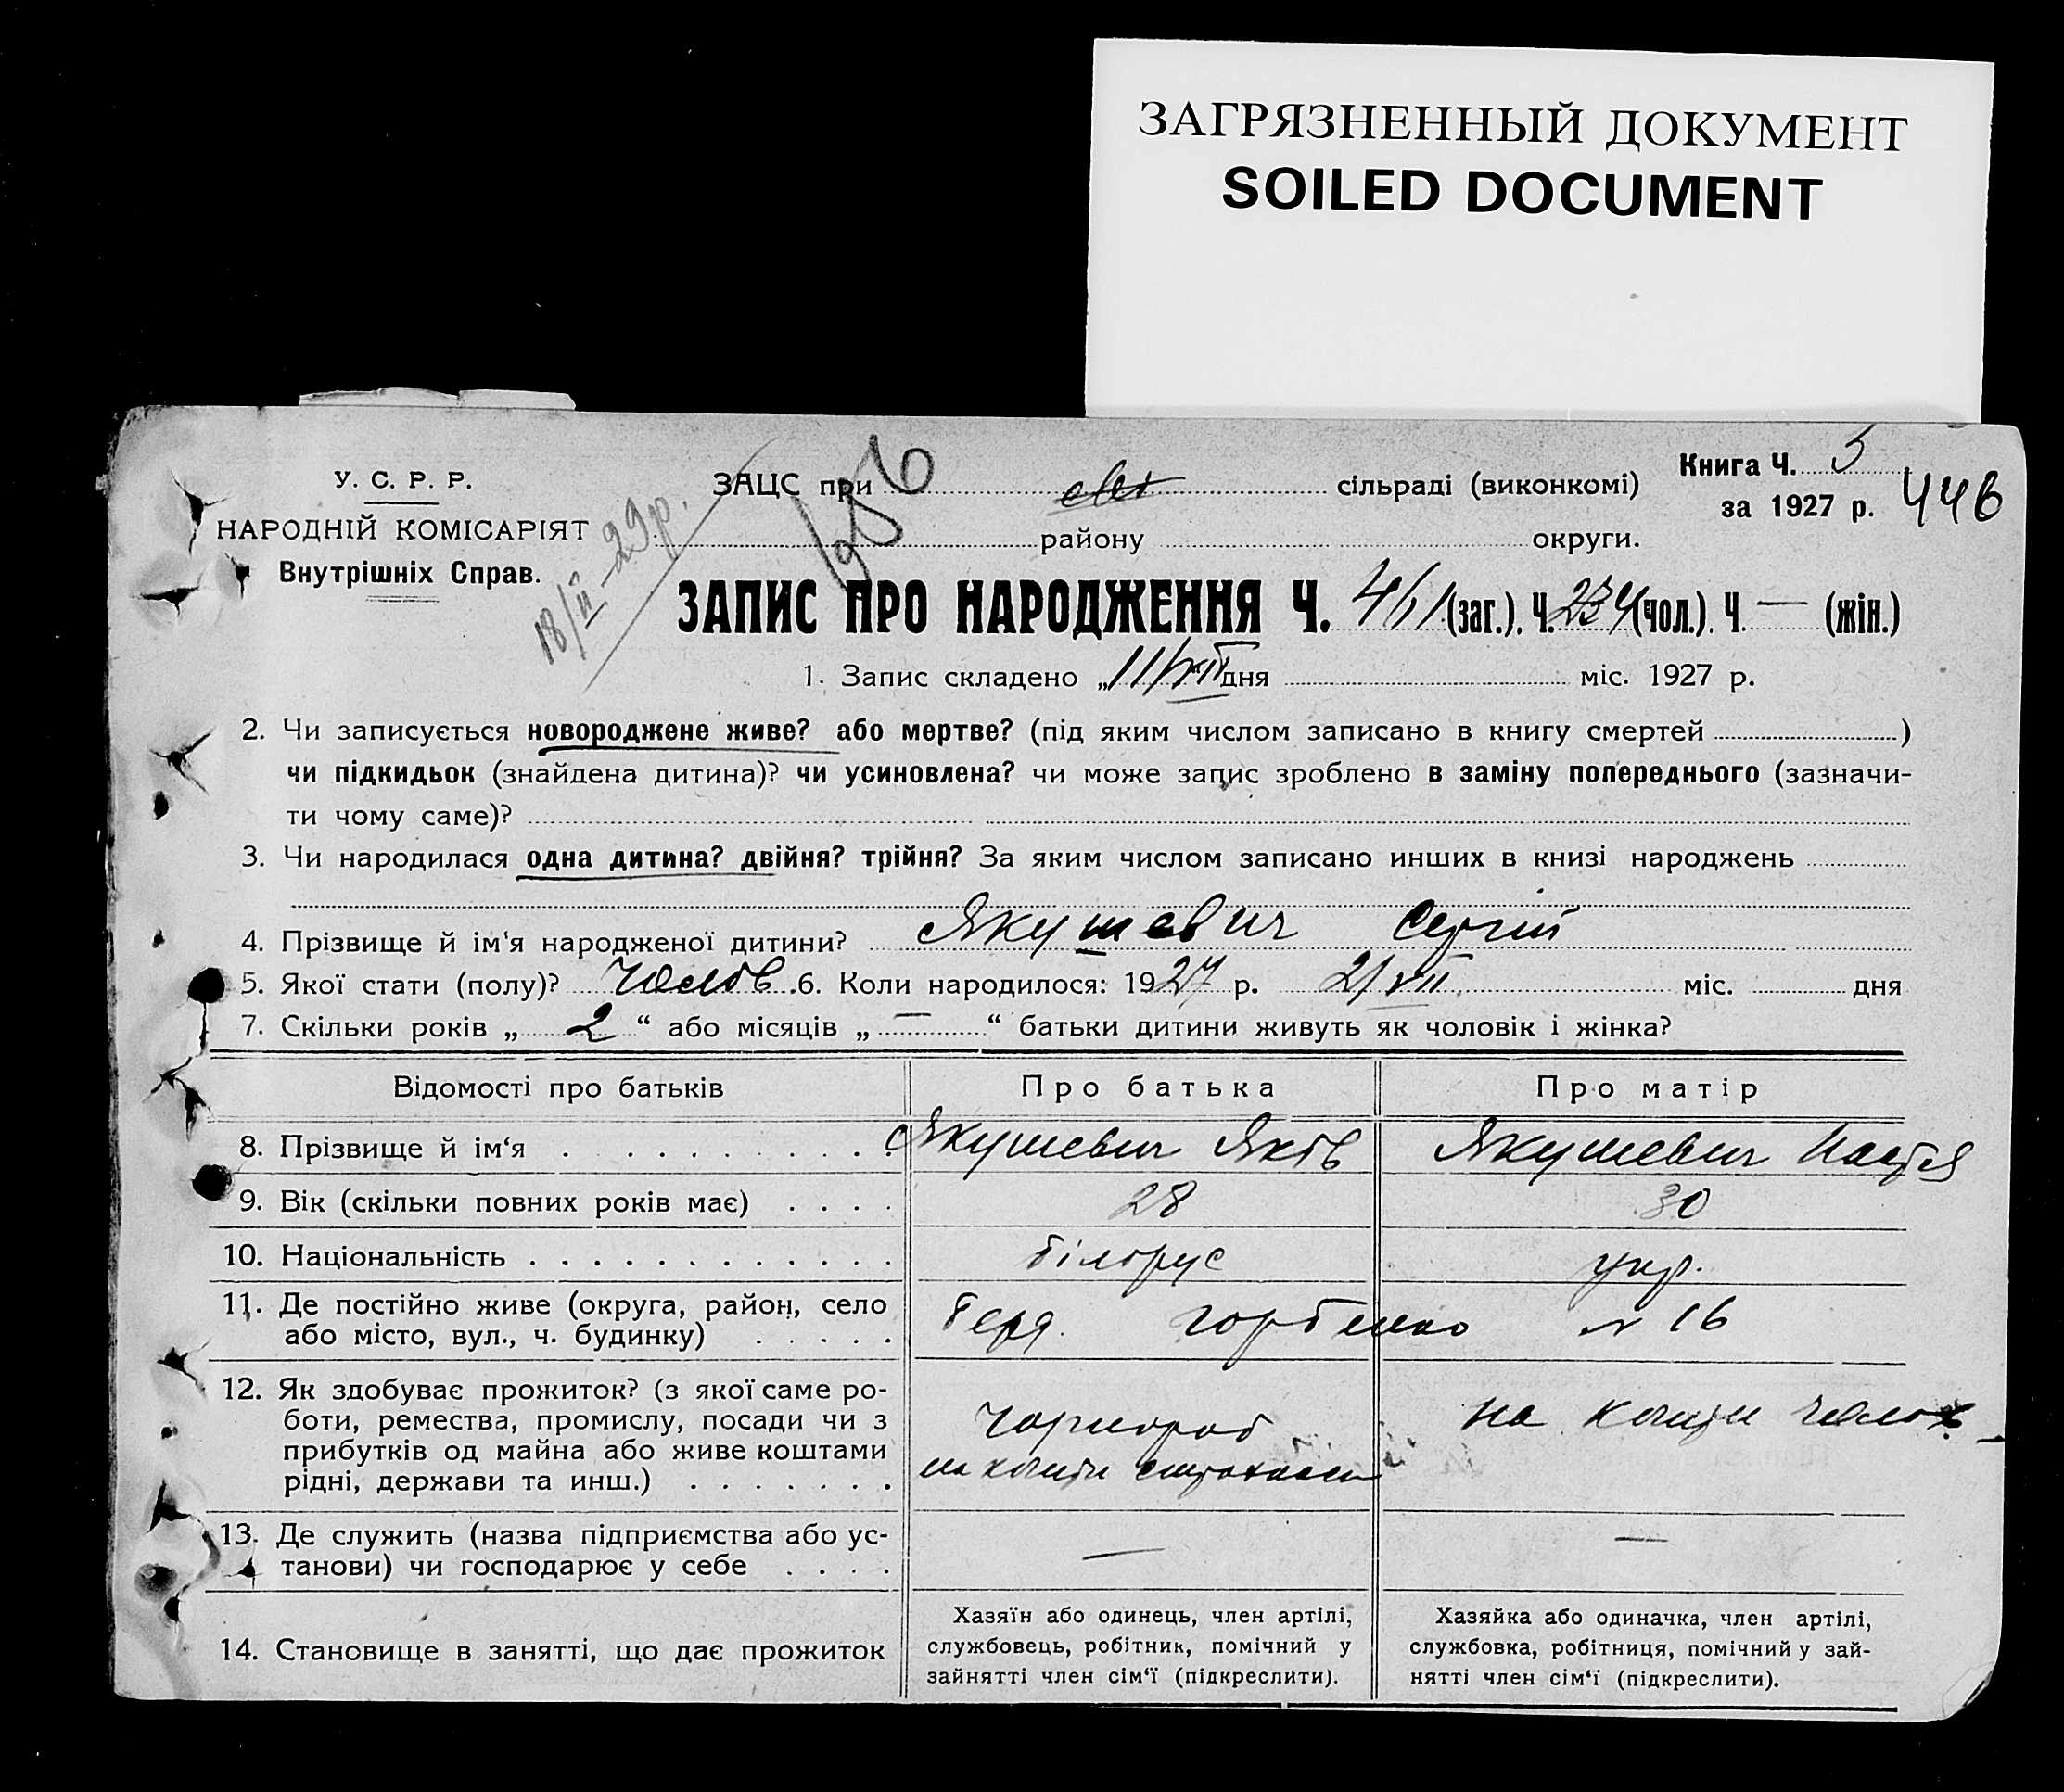 ЗАГРЯЗНЕННЫЙ ДОКУМЕНТ
SOILED DOCUMENT
У. С. Р. Р.
НАРОДНІЙ КОМІСАРІЯТ
Внутрішніх Справ.
18/II-29р.
ЗАЦС при сільраді (виконкомі)
Книга Ч. 5
за 1927 р. 446
району округи.
ЗАПИС ПРО НАРОДЖЕННЯ Ч. 461 (заг.). Ч. 234 (чол.). Ч. — (жін.)
1. Запис складено „11/VIII дня міс. 1927 р.
2. Чи записується новороджене живе? або мертве? (під яким числом записано в книгу смертей )
чи підкидьок (знайдена дитина)? чи усиновлена? чи може запис зроблено в заміну попереднього (зазначи-
ти чому саме)?
3. Чи народилася одна дитина? двійня? трійня? За яким числом записано инших в книзі народжень
4. Прізвище й ім‘я народженої дитини? Якушевич Сергій
5. Якої стати (полу)? Чолов. 6. Коли народилося: 1927 р. 2/VII міс. дня
7. Скільки років „ 2 “ або місяців „ — “ батьки дитини живуть як чоловік і жінка?
Відомості про батьків Про батька Про матір
8. Прізвище й ім‘я Якушевич Яків Якушевич Настя
9. Вік (скільки повних років має) 28 30
10. Національність білорус укр.
11. Де постійно живе (округа, район, село
або місто, вул., ч. будинку) Берд. № 16
12. Як здобуває прожиток? (з якої саме ро-
боти, ремества, промислу, посади чи з
прибутків од майна або живе коштами
рідні, держави та инш.)
Чорнороб
на кошти страхкаси
на кошти чолов.
13. Де служить (назва підприємства або ус-
танови) чи господарює у себе — —
14. Становище в занятті, що дає прожиток
Хазяїн або одинець, член артілі,
службовець, робітник, помічний у
зайнятті член сім‘ї (підкреслити).
Хазяйка або одиначка, член артілі,
службовка, робітниця, помічний у зай-
нятті член сім‘ї (підкреслити).